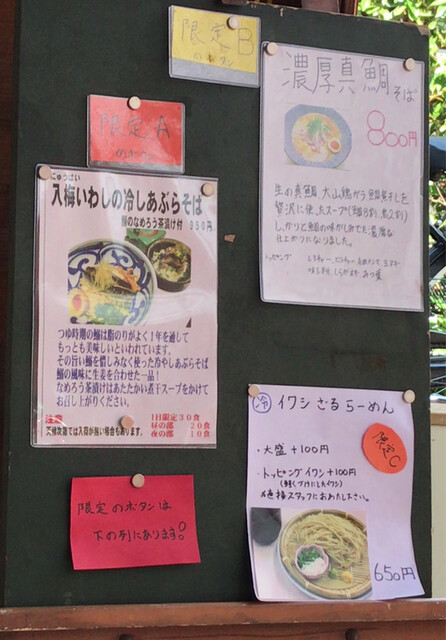 限定B
のボタン
限定A
のボタン
濃厚真鯛そば
800円
生の真鯛、大山鶏がら
贅沢に使ったスープ
しっかりと鯛の味がしみでた濃厚な
仕上がりになりました。
トッピング
にゅうばい
入梅いわしの冷しあぶらそば
鰯のなめろう茶漬け付 950円
つゆ時期の鰯は脂のりがよく1年を通して
もっとも美味しいといわれています。
その旨い鰯を惜しみなく使った冷やしあぶらそば
鰯の風味に生姜を合わせた一品!
なめろう茶漬けはあたたかい煮干スープをかけて
お召し上がりください。
注意
天候次第では入荷が無い場合もあります。
1日限定30食
昼の部 20食
夜の部 10食
限定のボタンは
下の列にあります!
冷 イワシざるらーめん
限定C
・大盛 +100円
・トッピングイワシ +100円
(軽くヅけにしたイワシ)
直接スタッフにおわたし下さい。
650円